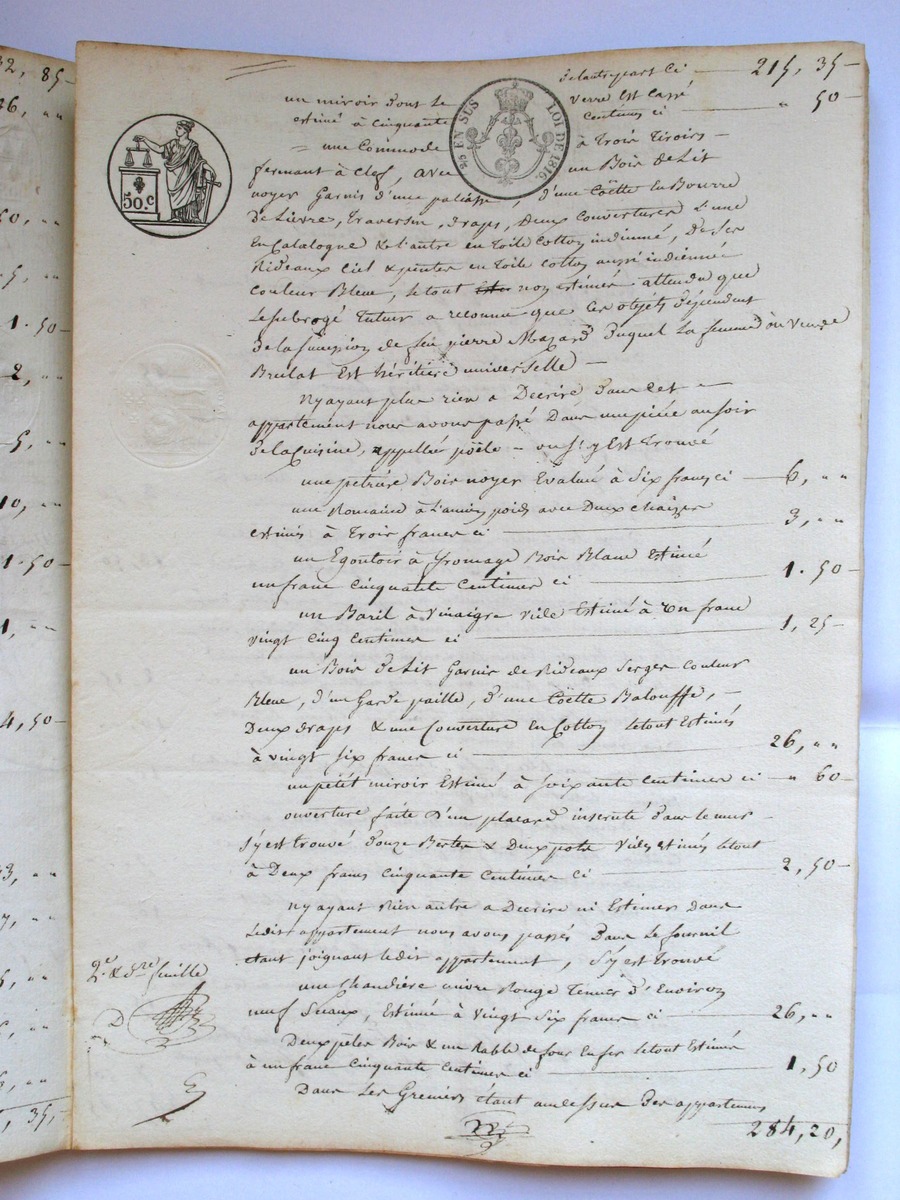 32, 85
1.50
2, "
10, "
1.50
1, "
4,50
35,
delautre part Ci 215, 35
50.c
25 EN SUS LOI DE 1816
un miroir dont le verre Est Cassé
estimé à Cinquante Centimes ci " 50
= une Commode à Trois Tiroirs
fermant à Clef, avec un Bois de Lit
noyer Garnis d'une paliasse, d'une Coëtte En Bourre
De Lievre, Traversin, draps, Deux Couvertures L'une
En Catalogne & L'autre en Toile Cotton indienné, De Ses
Rideaux Ciel & pentes en Toile Cotton aussi indienné
Couleur Bleue, le tout non estimés attendu que
Le subrogé Tuteur a reconnu que Ces objets dépendent
de la succion de feu pierre Mazard Duquel La femme d'ou veuve
Brulat Est héritière universelle —
N'y ayant plus rien a Décrire dans Cet
appartement nous avons passé Dans une pièce au soir
de la Cuisine, appellée poële — ou S'y Est trouvé
une petrière Bois noyer Evalué à Six francs ci 6, "
une Romaine à L'ancien poids avec Deux chaizes
estimés à Trois francs ci 3, "
un Egoutoir à fromage Bois Blanc Estimé
un franc Cinquante Centimes ci 1.50
un Baril à Vinaigre vide Estimé à un franc
vingt Cinq Centimes ci 1,25
un Bois de Lit Garnis de Rideaux Serges Couleur
Bleue, d'un Garde paille, d'une Coëtte Balouffe,
Deux draps & une Couverture en Cotton le tout Estimés
à vingt Six francs ci 26, "
un petit miroir Estimé à Soixante Centimes ci " 60
ouverture faite d'un placard incruté dans le mur
S'y est trouvé douze Bertes & Deux pots vides estimés le tout
à Deux francs Cinquante Centimes Ci 2,50
N'y ayant Rien autre a Décrire ni Estimer dans
Ledit appartement nous avons passés Dans Le fournil
étant joignant ledit appartement, S'y est trouvé
une Chaudière cuivre Rouge Tenant d'Environ
neuf Seaux, Estimée à Vingt Six francs ci 26, "
Deux pèles Bois & un Rable de four En fer le tout Estimés
à un franc Cinquante Centimes ci 1,50
Dans Les Greniers étant au dessus des appartemens
284,20,
2.e & d.re feuille